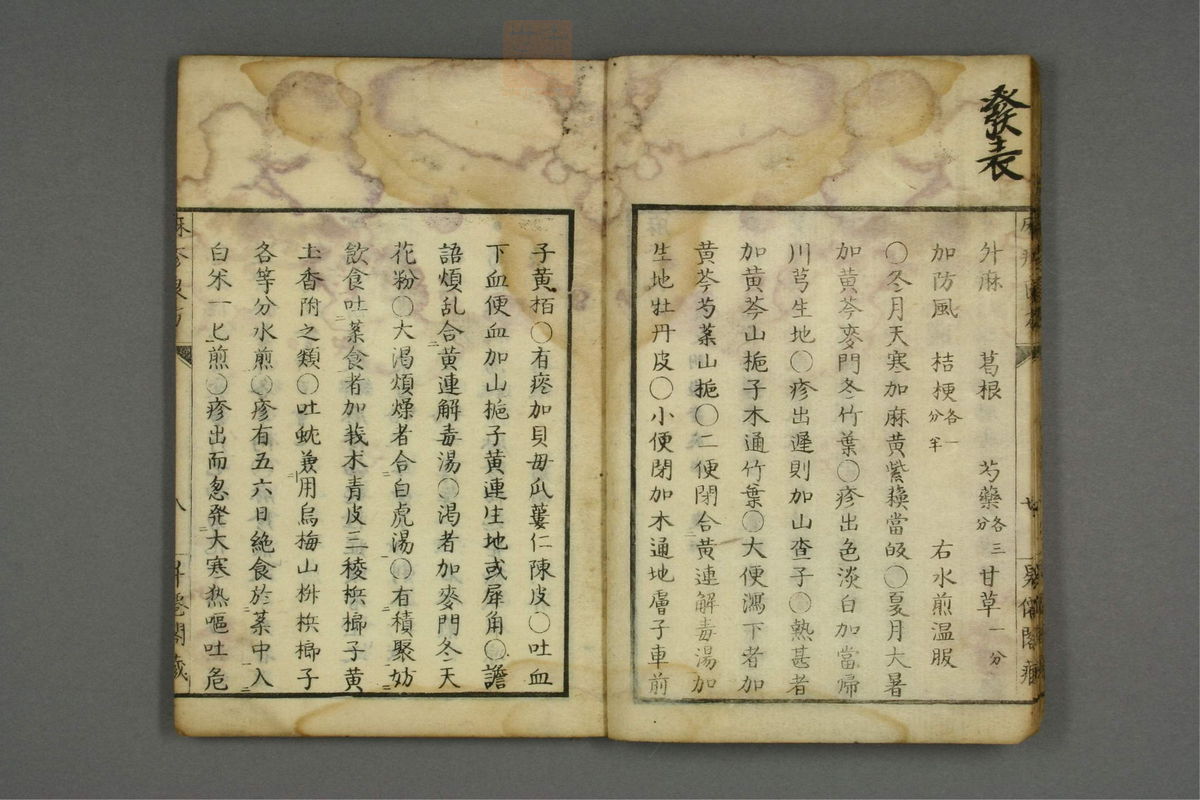 發表
升麻 葛根 芍藥各三分 甘草一分
加防風 桔梗各一分半 右水煎温服
〇冬月天寒加麻黄紫蘓當皈〇夏月大暑
加黄芩麥門冬竹葉〇疹出色淡白加當歸
川芎生地〇疹出遲則加山査子〇熱甚者
加黄芩山梔子木通竹葉〇大便瀉下者加
黄芩芍薬山梔〇二便閉合黄連解毒湯加
生地牡丹皮〇小便閉加木通地膚子車前
子黄栢〇有痰加貝母瓜蔞仁陳皮〇吐血
下血便血加山梔子黄連生地或犀角〇譫
語煩乱合黄連解毒湯〇渇者加麥門冬天
花粉〇大渇煩燥者合白虎湯〇有積聚妨
飲食吐薬食者加莪朮青皮三稜梹榔子黄
土香附之類〇吐蚘兼用烏梅山椒梹榔子
各等分水煎〇疹有五六日絶食於薬中入
白米一匕煎〇疹出而忽発大寒热嘔吐危